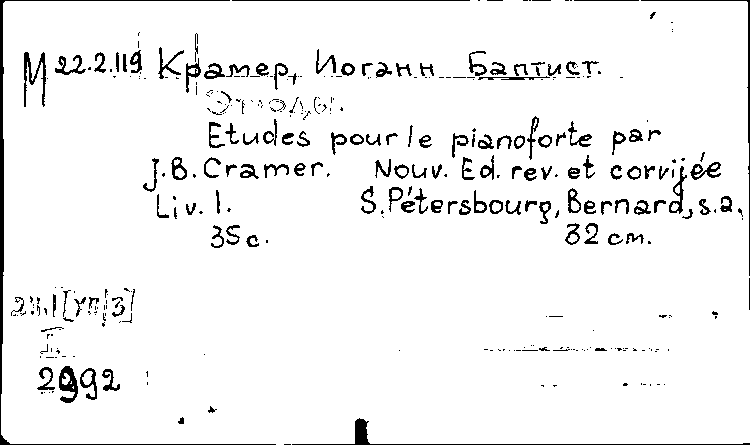 М 22.2.119 Крамер, Иоганн Баптист.
Этюды.
Etudes pour le pianoforte par
J.B. Cramer. Nouv. Ed. rev. et corrijée
Liv. 1. S. Pétersbourg, Bernard, s.a.
35 c. 32 cm.
I.
2992